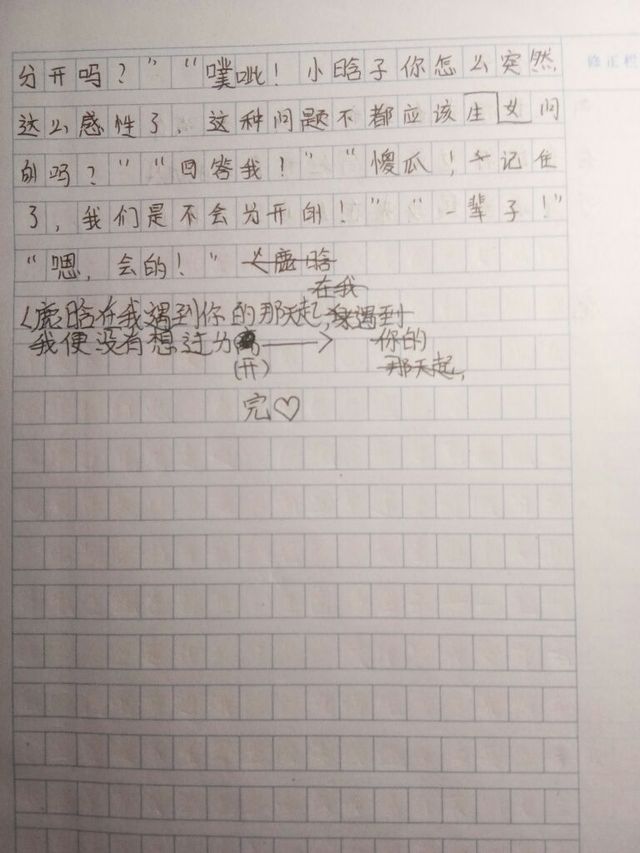 修正栏
分开吗？”“噗呲！小晗子你怎么突然
这么感性了，这种问题不都应该生女问
的吗？”“回答我！”“傻瓜！记住
了，我们是不会分开的！”“一辈子！”
“嗯，会的！”《鹿晗
在我
《鹿晗在我遇到你的那天起，遇到
我便没有想过分 → 你的
（开） 那天起，
完♡